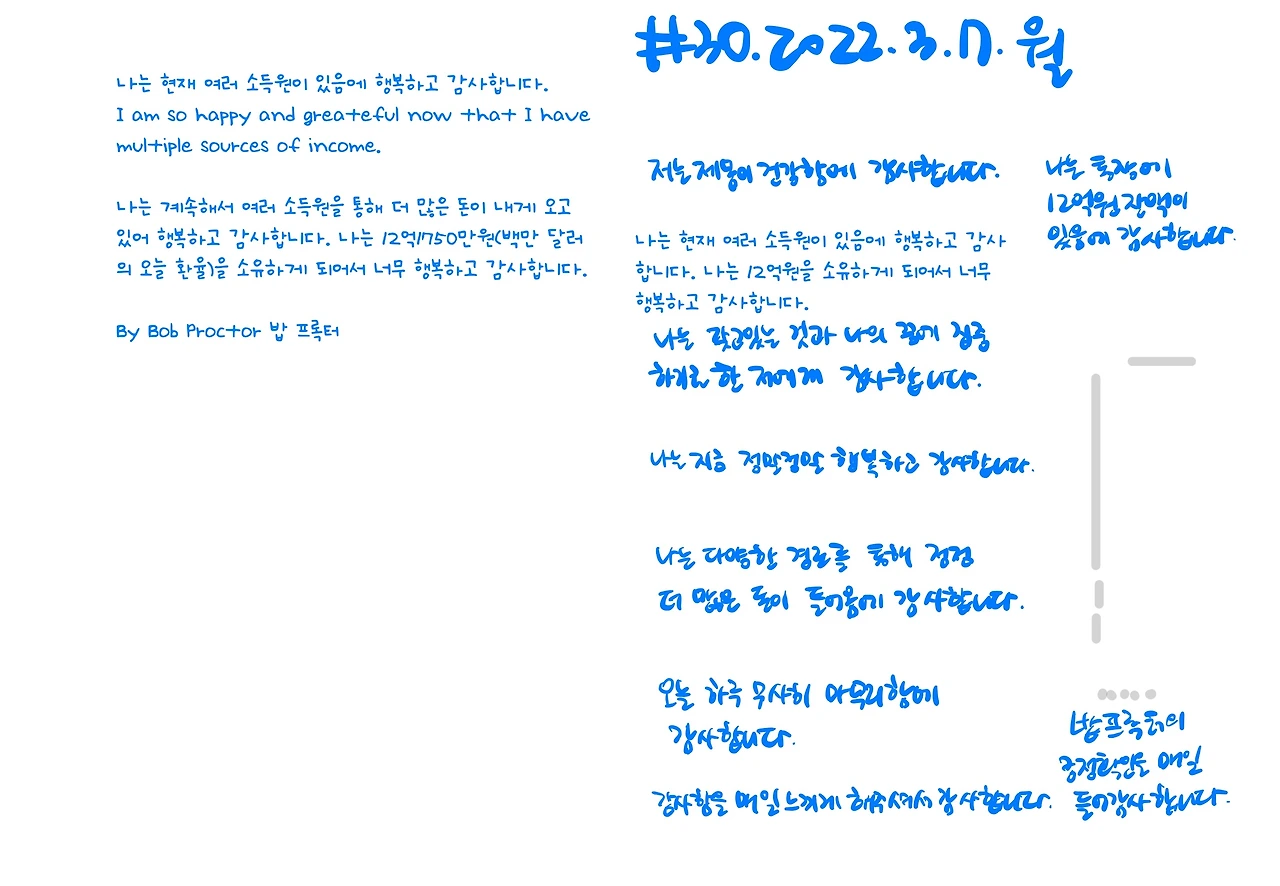 나는 현재 여러 소득원이 있음에 행복하고 감사합니다.
I am so happy and greateful now that I have
multiple sources of income.
나는 계속해서 여러 소득원을 통해 더 많은 돈이 내게 오고
있어 행복하고 감사합니다. 나는 12억1750만원(백만 달러
의 오늘 환율)을 소유하게 되어서 너무 행복하고 감사합니다.
By Bob Proctor 밥 프록터
#30.2022.3.17. 월
저는 제몸이 건강함에 감사합니다.
나는 현재 여러 소득원이 있음에 행복하고 감사
합니다. 나는 12억원을 소유하게 되어서 너무
행복하고 감사합니다.
나는 갖고있는 것과 나의 꿈에 집중
하기로 한 저에게 감사합니다.
나는 지금 정말정말 행복하고 감사합니다.
나는 다양한 경로를 통해 점점
더 많은 돈이 들어옴에 감사합니다.
오늘 하루 무사히 마무리함에
감사합니다.
감사함을 매일 느끼게 해주셔서 감사합니다.
나는 통장에
12억원 잔액이
있음에 감사합니다.
밥프록터의
긍정확언을 매일
들어감사합니다.